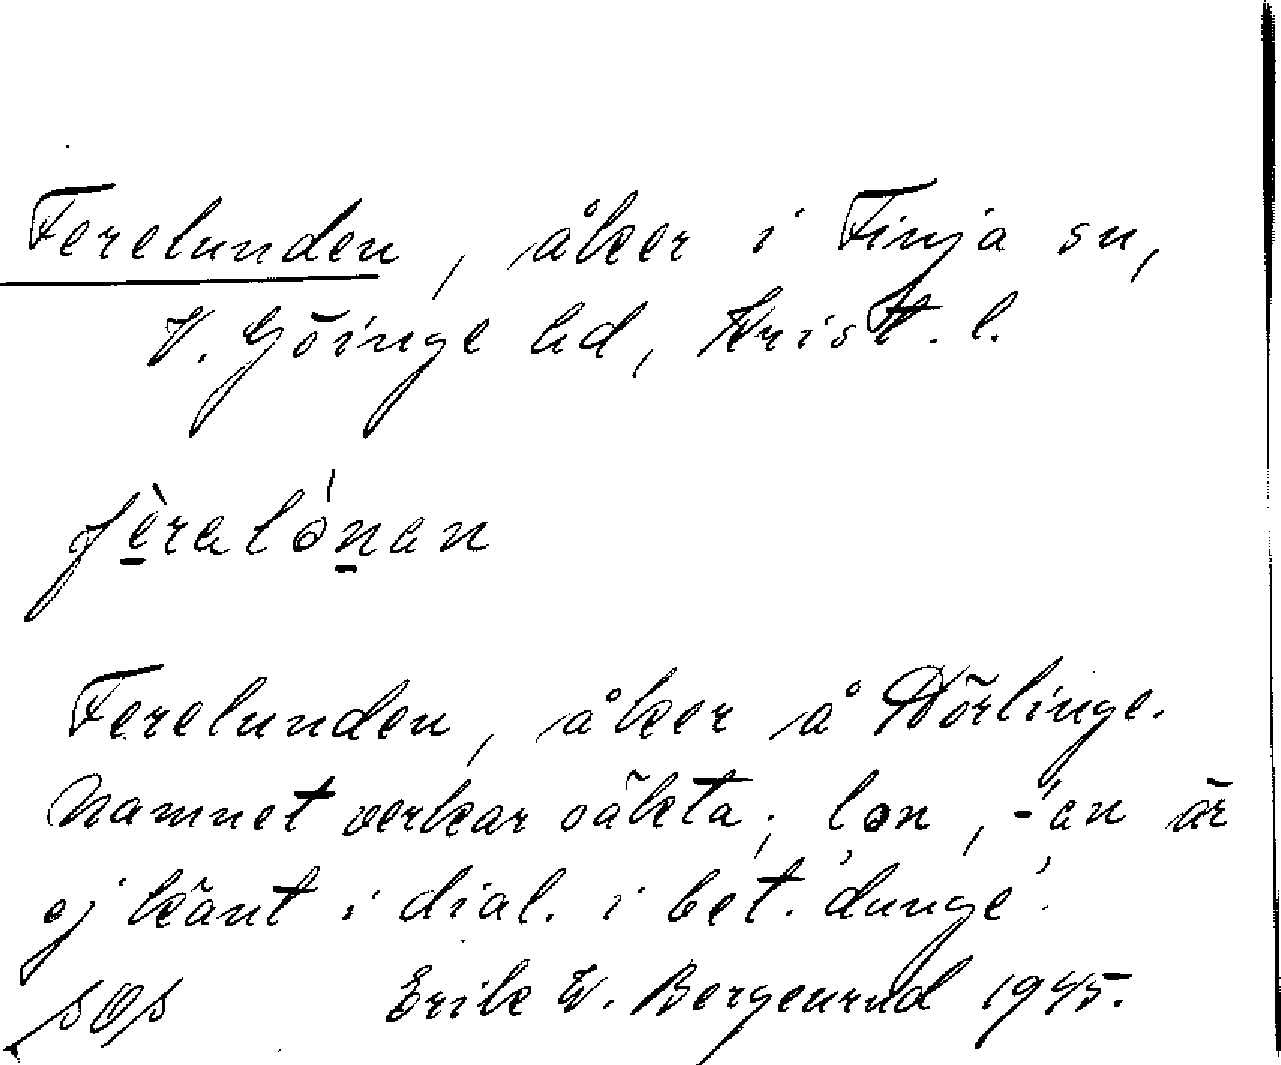 Ferelunden, åker i Finja sn,
V. Göinge hd, Krist. l.
fèralónan
Ferelunden, åker å Hörlinge.
Namnet verkar oäkta; lon, -en är
ej känt i dial. i bet. 'dunge'.
Erik W. Bergenrud 1945.